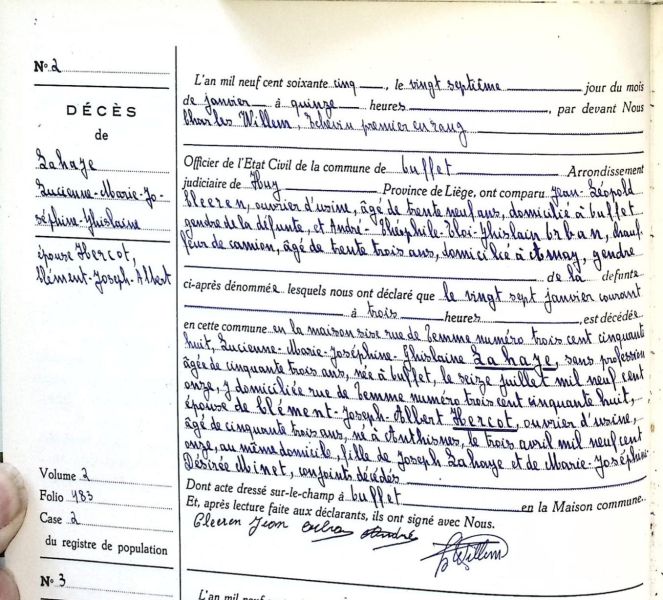 N° 2
DÉCÈS
de
Lahaye
Lucienne-Marie-Jo-
séphine-Ghislaine
épouse Hercot,
Clément-Joseph-Albert
Volume 2
Folio 483
Case 2
du registre de population
N° 3
L'an mil neuf cent soixante cinq, le vingt septième jour du mois
de janvier à quinze heures, par devant Nous
Charles Willem, Echevin premier en rang
Officier de l'Etat Civil de la commune de Ouffet Arrondissement
judiciaire de Huy Province de Liège, ont comparu Jean-Léopold
Cleeren, ouvrier d'usine, âgé de trente neuf ans, domicilié à Ouffet
gendre de la défunte, et André-Théophile-Eloi-Ghislain Urban, chauf-
feur de camion, âgé de trente trois ans, domicilié à Amay, gendre
de la defunte
ci-après dénommée lesquels nous ont déclaré que le vingt sept janvier courant
à trois heures, est décédée
en cette commune en la maison sise rue de Temme numéro trois cent cinquante
huit, Lucienne-Marie-Joséphine-Ghislaine Lahaye, sans profession
âgée de cinquante trois ans, née à Ouffet, le seize juillet mil neuf cent
onze, y domiciliée rue de Temme numéro trois cent cinquante huit,
épouse de Clément-Joseph-Albert Hercot, ouvrier d'usine,
âgé de cinquante trois ans, né à Anthisnes, le trois avril mil neuf cent
onze, au même domicile, fille de Joseph Lahaye et de Marie-Joséphine
Désirée Minet, conjoints décédés
Dont acte dressé sur-le-champ à Ouffet en la Maison commune.
Et, après lecture faite aux déclarants, ils ont signé avec Nous.
Cleeren Jean Urban André Willem
L'an mil neuf cent